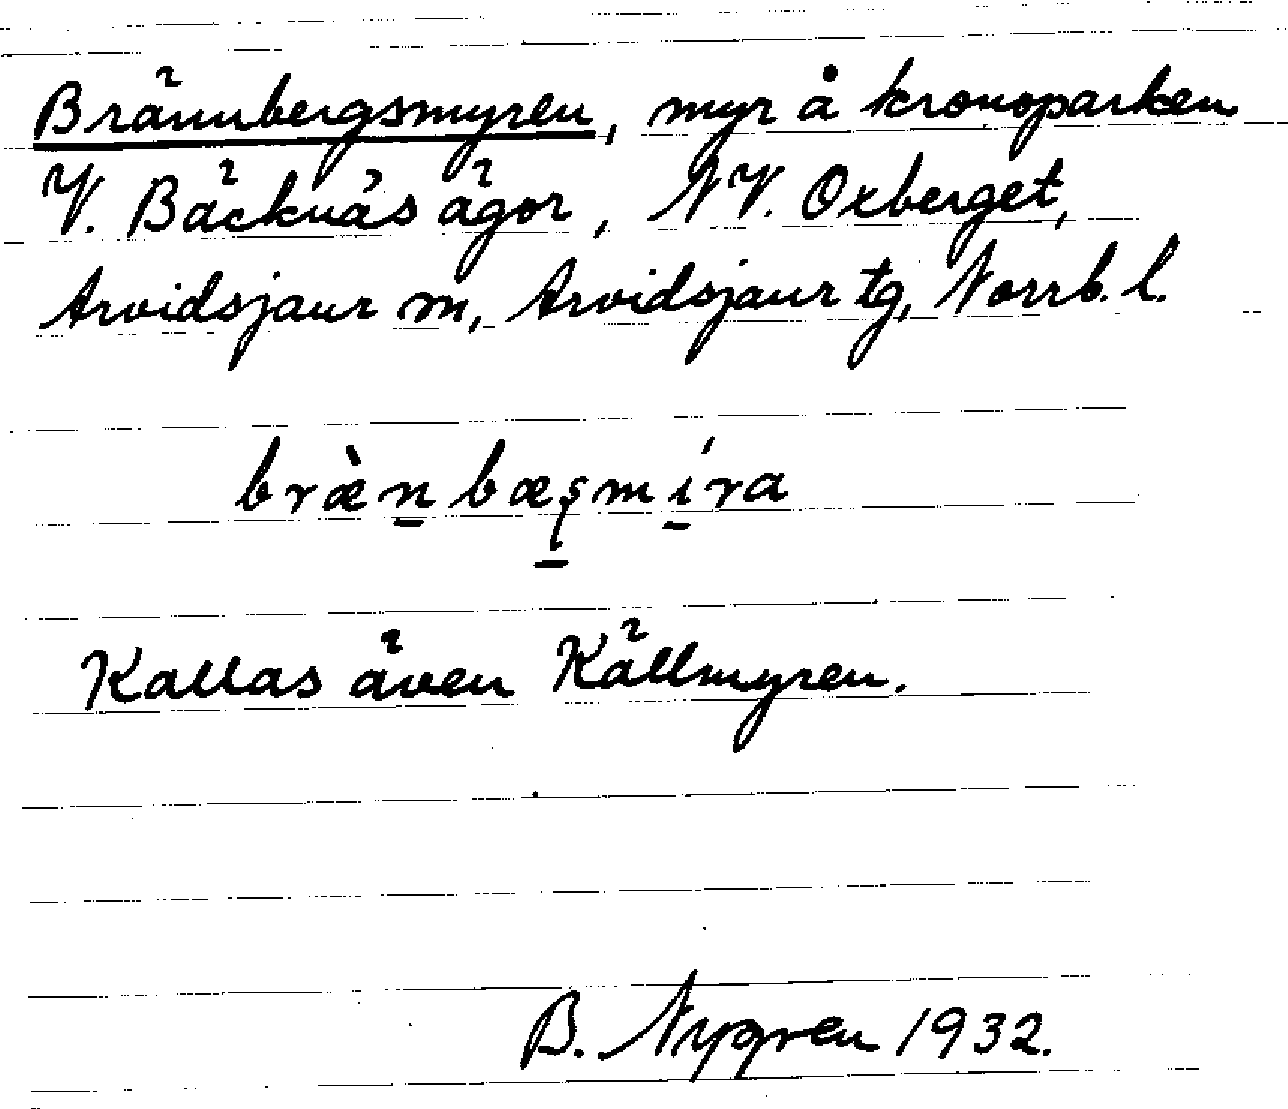 Brännbergsmyren, myr å kronoparken
V. Bäcknäs ägor, NV. Oxberget,
Arvidsjaur m, Arvidsjaur tg, Norrb. l.
bræ̀n̲bæş̲mí̲ra
Kallas även Källmyren.
B. Nygren 1932.